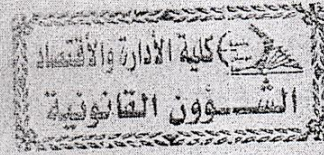 كلية الأدارة والأقتصاد
الشــؤون القانونية